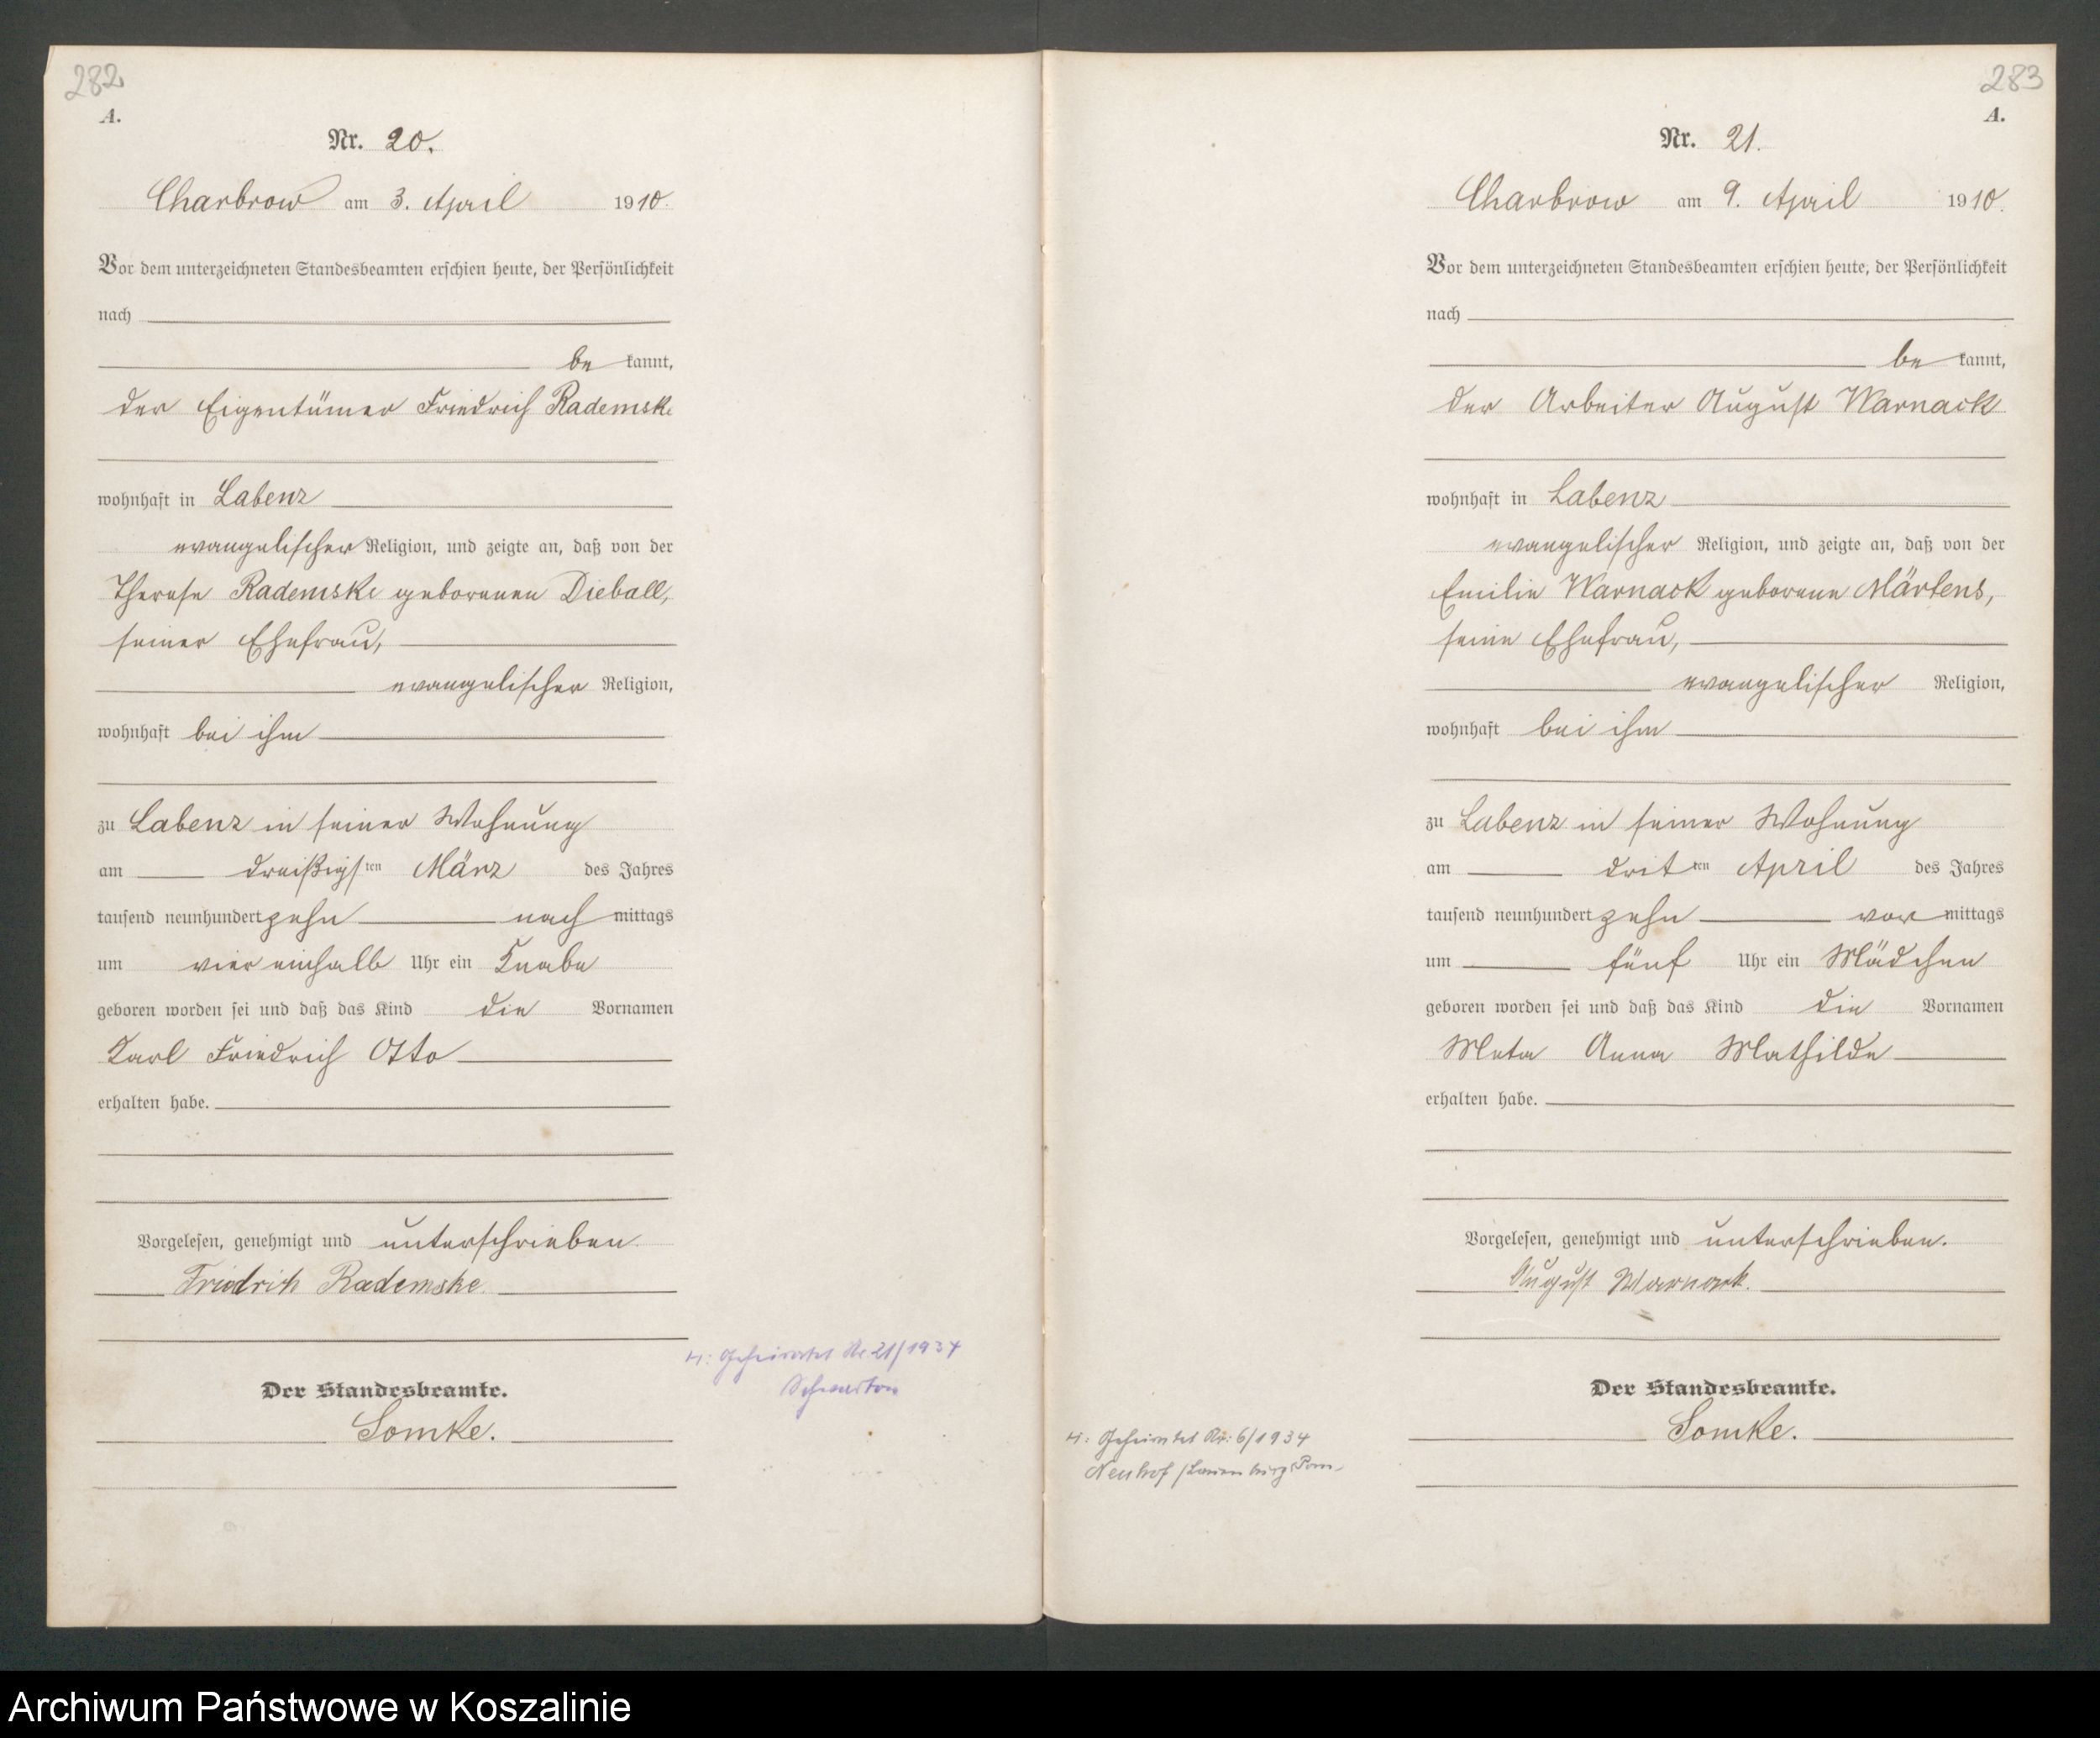 282
A.
Nr. 20.
Charbrow am 3. April 1910.
Vor dem unterzeichneten Standesbeamten erschien heute, der Persönlichkeit
nach
be kannt,
der Eigentümer Friedrich Rademske
wohnhaft in Labenz
evangelischer Religion, und zeigte an, daß von der
Therese Rademske geborenen Dieball,
seiner Ehefrau,
evangelischer Religion,
wohnhaft bei ihm
zu Labenz in seiner Wohnung
am dreißigsten März des Jahres
tausend neunhundert zehn nach mittags
um vier einhalb Uhr ein Knabe
geboren worden sei und daß das Kind die Vornamen
Karl Friedrich Otto
erhalten habe.
Vorgelesen, genehmigt und unterschrieben.
Friedrich Rademske.
H: Geheiratet Nr 21/1937
Der Standesbeamte.
Somke.
283
A.
Nr. 21.
Charbrow am 9. April 1910.
Vor dem unterzeichneten Standesbeamten erschien heute, der Persönlichkeit
nach
be kannt,
der Arbeiter August Warnack
wohnhaft in Labenz
evangelischer Religion, und zeigte an, daß von der
Emilie Warnack geborene Märtens,
seine Ehefrau,
evangelischer Religion,
wohnhaft bei ihm
zu Labenz in seiner Wohnung
am dritten April des Jahres
tausend neunhundert zehn vor mittags
um fünf Uhr ein Mädchen
geboren worden sei und daß das Kind die Vornamen
Meta Anna Mathilde
erhalten habe.
Vorgelesen, genehmigt und unterschrieben.
August Warnack.
Der Standesbeamte.
Somke.
H: Geheiratet Nr: 6/1934
Neuhof /Lauenburg Pom.
Archiwum Państwowe w Koszalinie